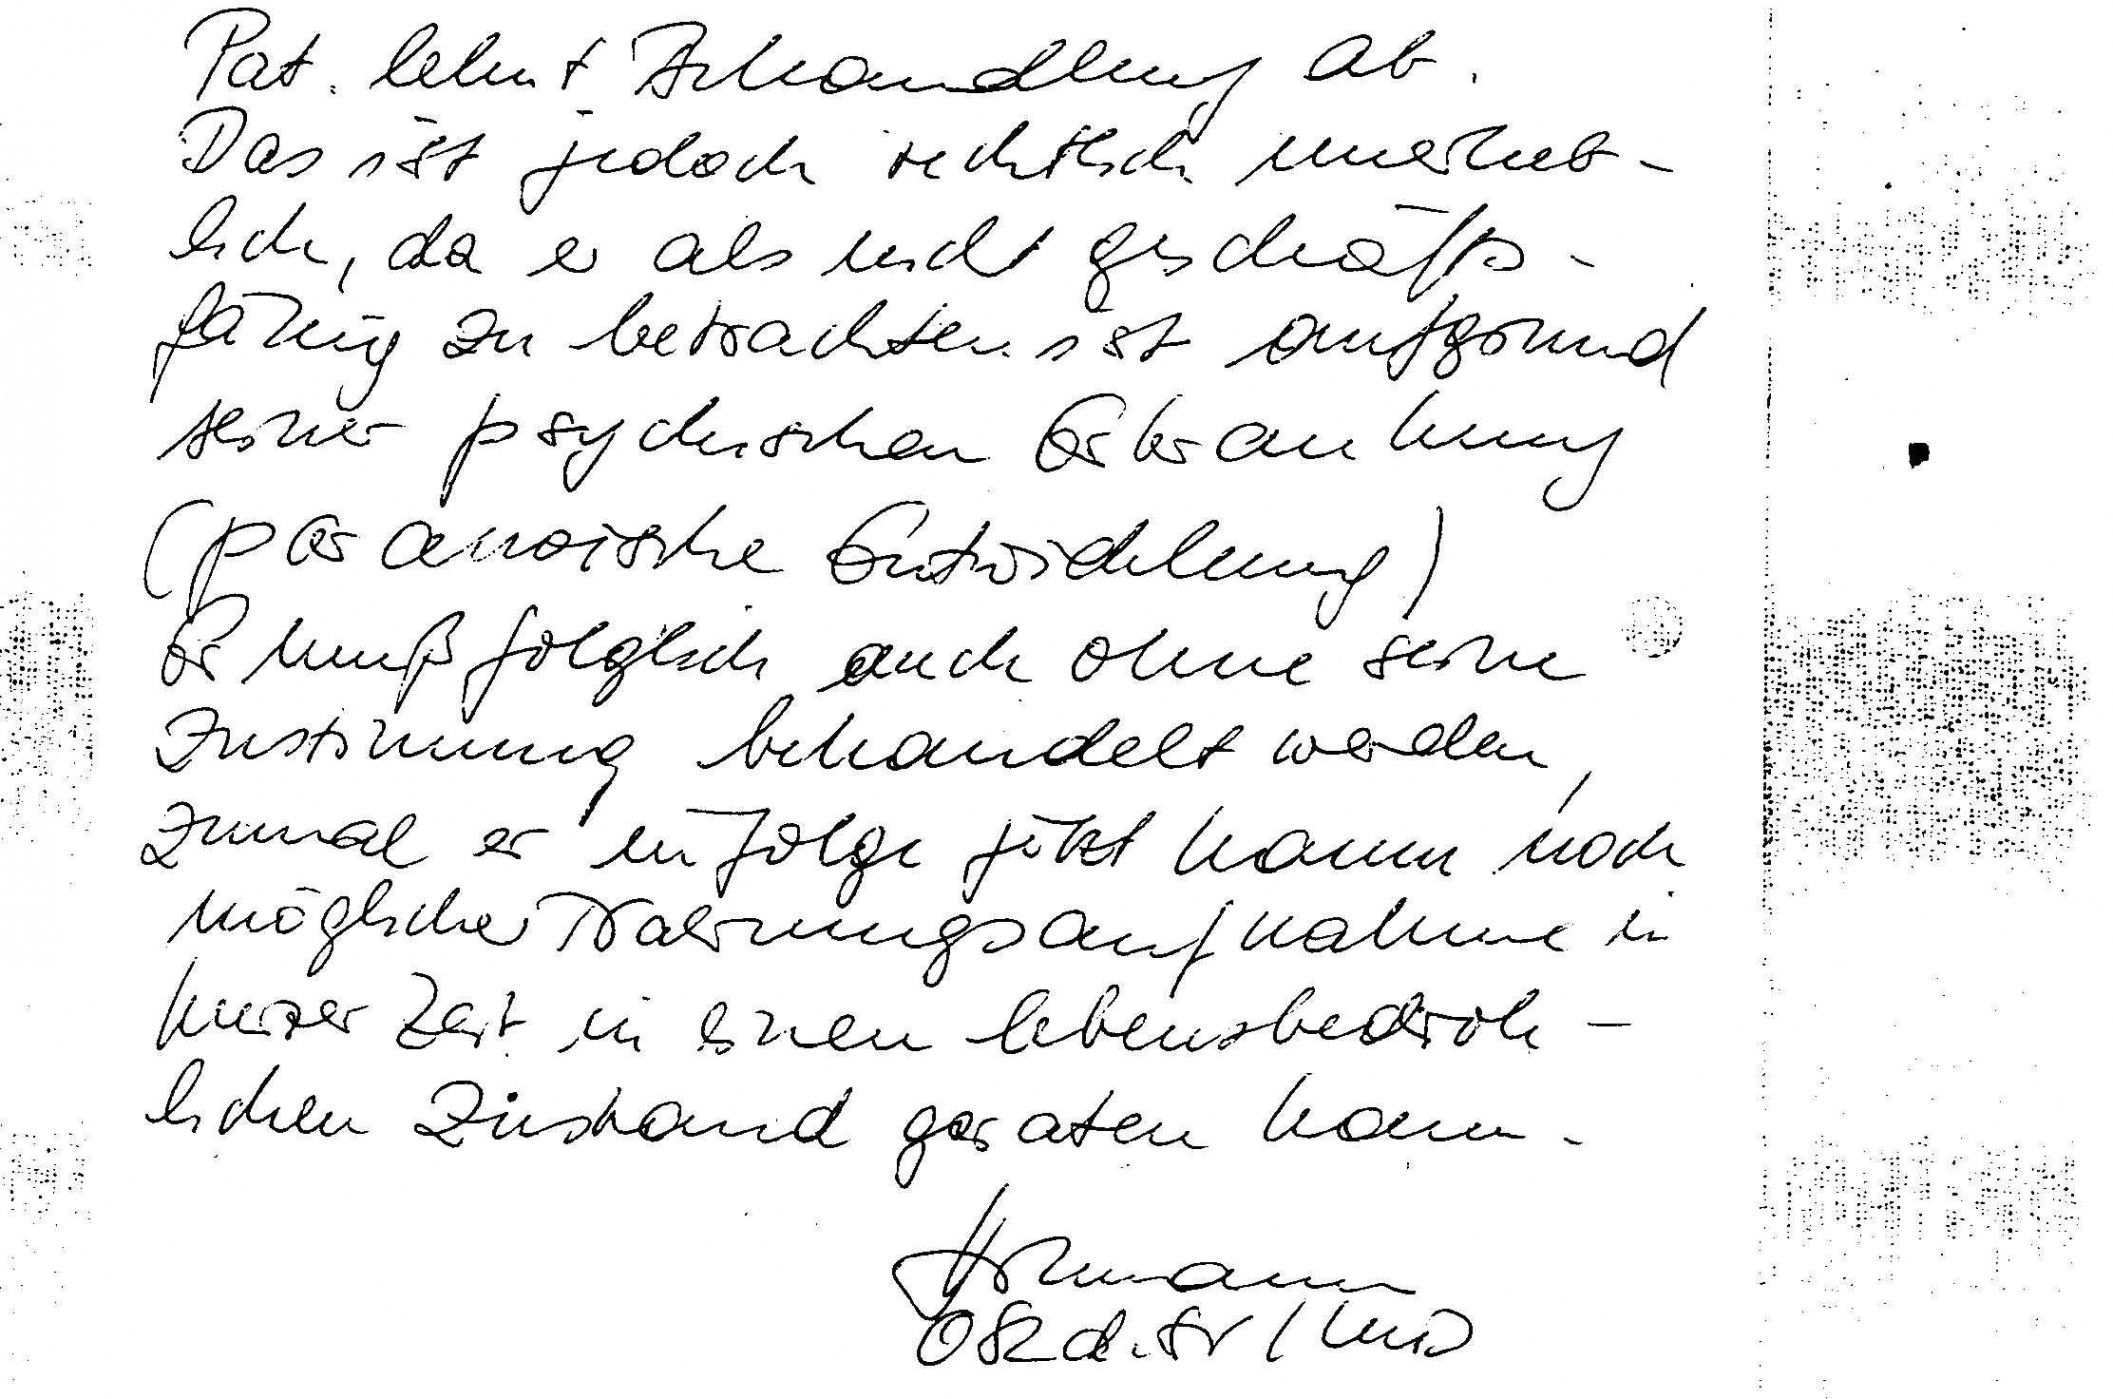 Pat. lehnt Behandlung ab.
Das ist jedoch rechtlich unerheb-
lich, da er als nicht geschäfts-
fähig zu betrachten ist aufgrund
seiner psychischen Erkrankung
(paranoische Entwicklung)
Er muß folglich auch ohne seine
Zustimmung behandelt werden,
zumal er infolge jetzt kaum noch
möglicher Nahrungsaufnahme in
kurzer Zeit in einen lebensbedroh-
lichen Zustand geraten kann.